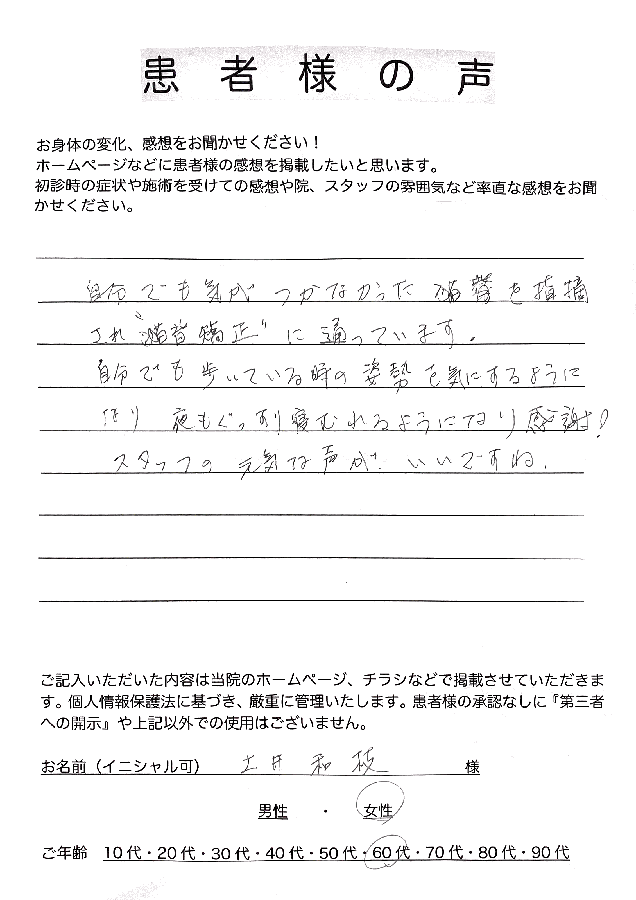 患者様の声
お身体の変化、感想をお聞かせください！
ホームページなどに患者様の感想を掲載したいと思います。
初診時の症状や施術を受けての感想や院、スタッフの雰囲気など率直な感想をお聞
かせください。
自分でも気がつかなかった猫背を指摘
され"猫背矯正"に通っています.
自分でも歩いている時の姿勢を気にするように
なり 夜もぐっすり寝むれるようになり感謝!
スタッフの元気な声がいいですね.
ご記入いただいた内容は当院のホームページ、チラシなどで掲載させていただきま
す。個人情報保護法に基づき、厳重に管理いたします。患者様の承認なしに『第三者
への開示』や上記以外での使用はございません。
お名前（イニシャル可） 土井 和枝 様
男性 ・ 女性
ご年齢 10代・20代・30代・40代・50代・60代・70代・80代・90代